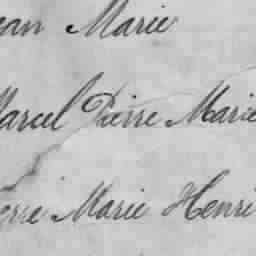 ean Marie
Marcel Pierre Marie
erre Marie Henri